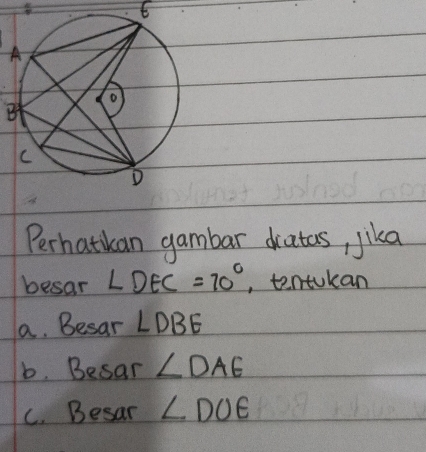 E
A
O
B
C
D
Perhatikan gambar diatas, jika
besar ∠DEC = 70°, tentukan
a. Besar ∠DBE
b. Besar ∠DAE
c. Besar ∠DOE